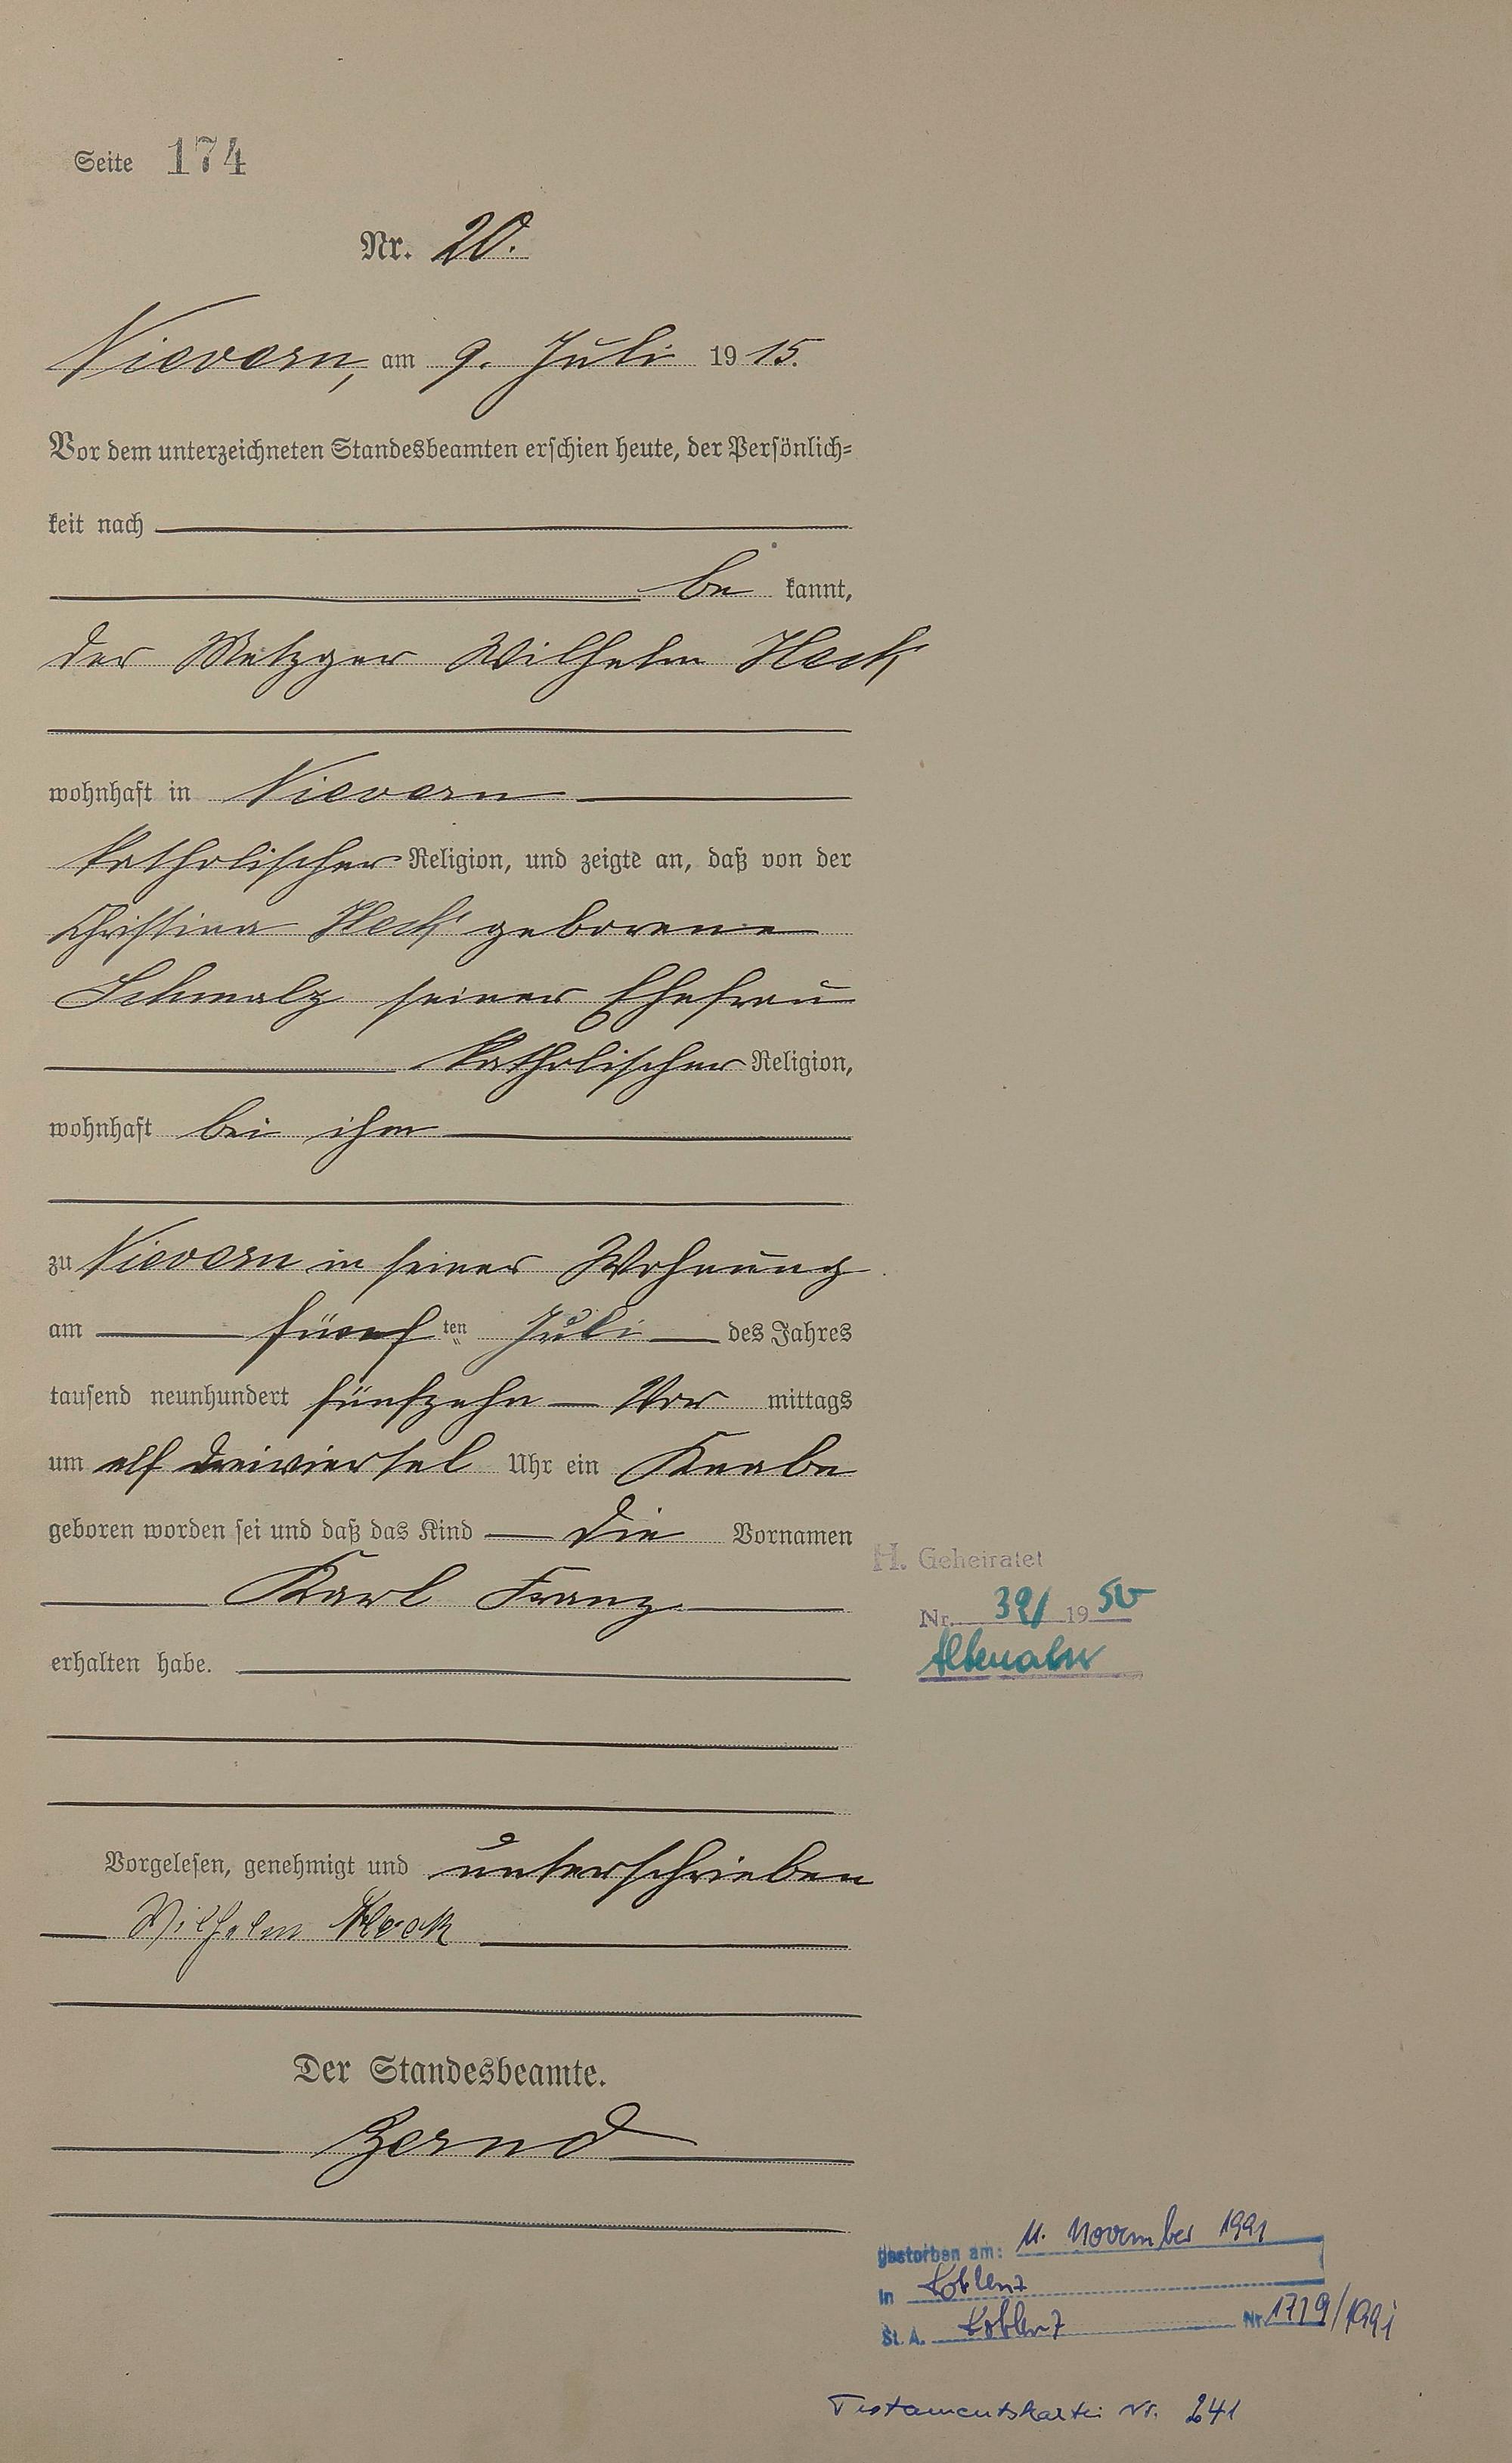 Seite 174
Nr. 20.
Nievern, am 9. Juli 1915.
Vor dem unterzeichneten Standesbeamten erschien heute, der Persönlich-
keit nach
be kannt,
der Metzger Wilhelm Heck
wohnhaft in Nievern
katholischer Religion, und zeigte an, daß von der
Christina Heck geborene
Schmalz seiner Ehefrau
katholischer Religion,
wohnhaft bei ihm
zu Nievern in seiner Wohnung
am fünften Juli des Jahres
tausend neunhundert fünfzehn Vor mittags
um elf dreiviertel Uhr ein Knabe
geboren worden sei und daß das Kind die Vornamen
Karl Franz
erhalten habe.
H. Geheiratet
Nr. 39/1950
Altenahr
Vorgelesen, genehmigt und unterschrieben
Wilhelm Heck
Der Standesbeamte.
Zernd
gestorben am: 11. November 1991
in Koblenz
St. A. Koblenz Nr. 1719/1991
Testamentskartei Nr. 241